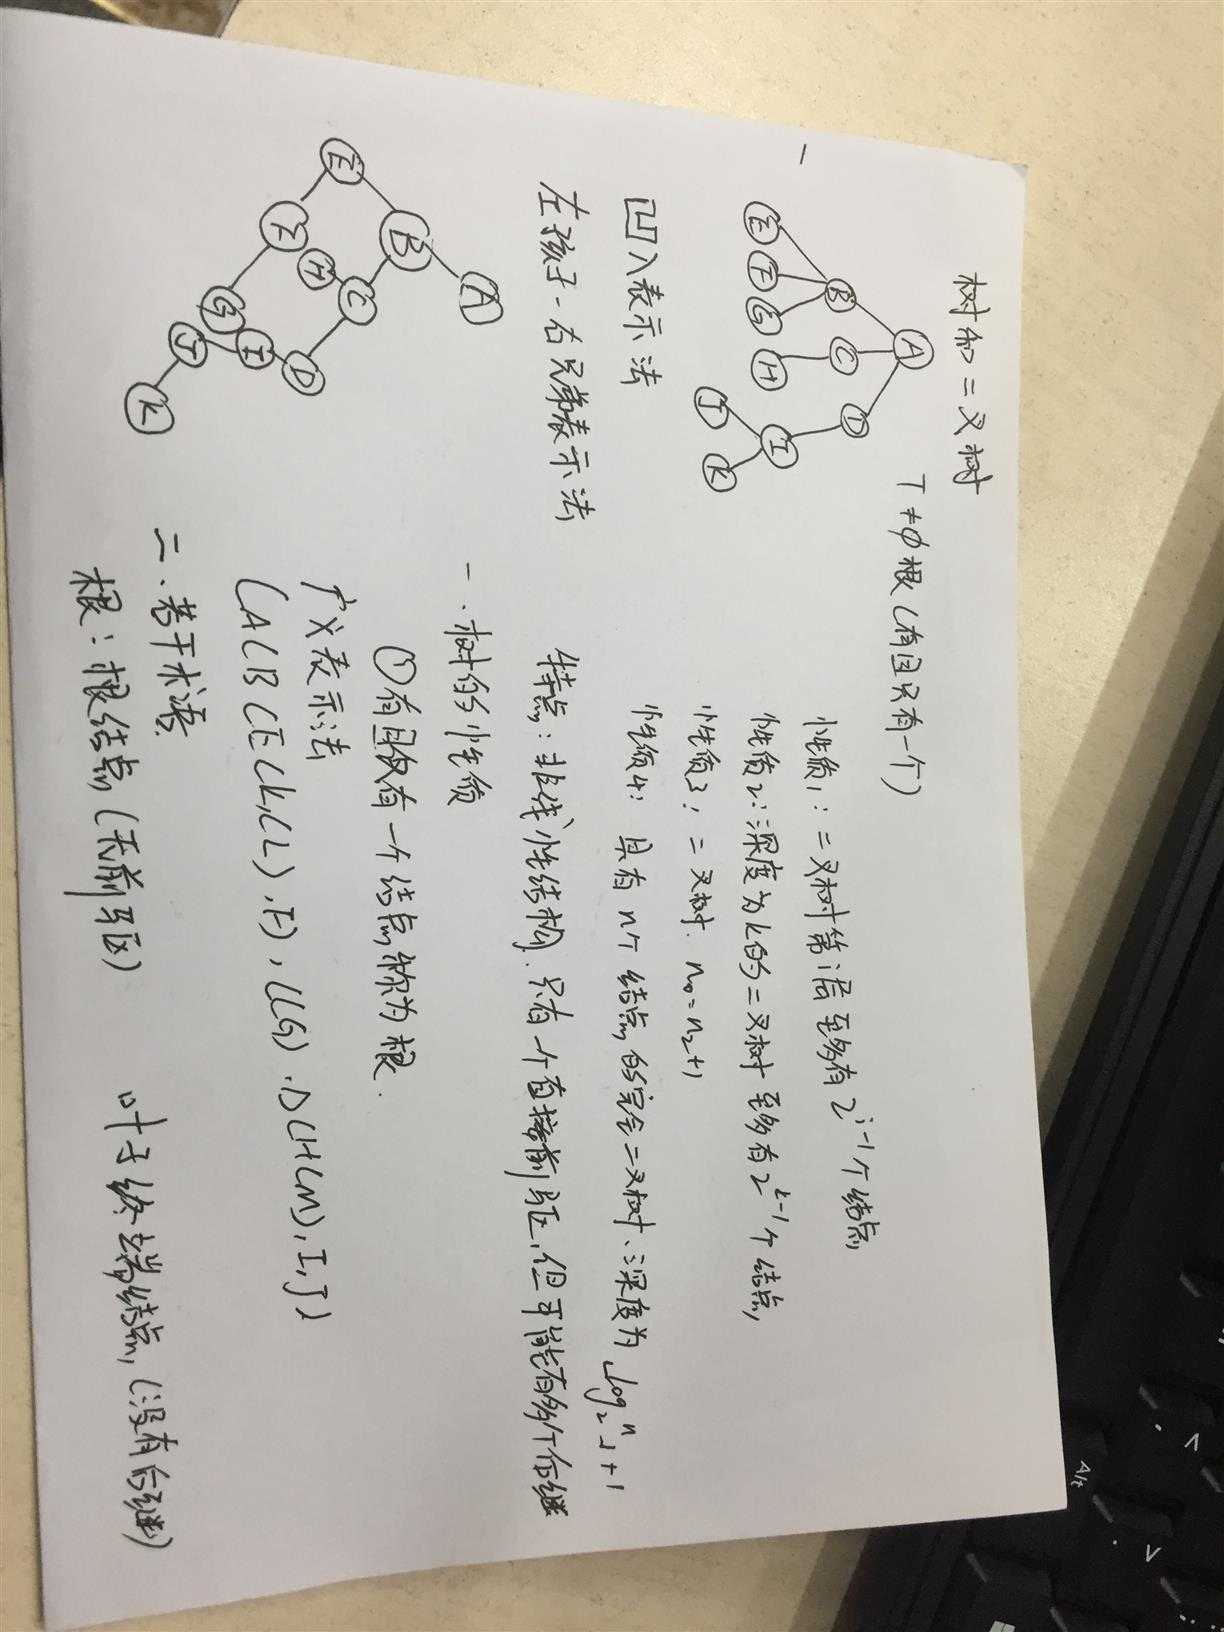 树和二叉树
T≠φ 根(有且只有一个)
一
A
B C D
E F G H I
J K
性质1：二叉树第i层至多有2^i-1个结点
性质2：深度为k的二叉树至多有2^k-1个结点
性质3：二叉树. n0=n2+1
性质4：具有n个结点的完全二叉树、深度为⌊log2n⌋+1
凹入表示法
左孩子-右兄弟表示法
A
B
E C
F H D
G I
J
K
特点：非线性结构.只有一个直接前驱,但可能有多个后继
一.树的性质
①有且仅有一个结点称为根.
广义表示法
(A(B(E(K,L),F),C(G).D(H(M),I,J)
二.若干术语
根：根结点(无前驱)
叶子终端结点,(没有后继)
Alt